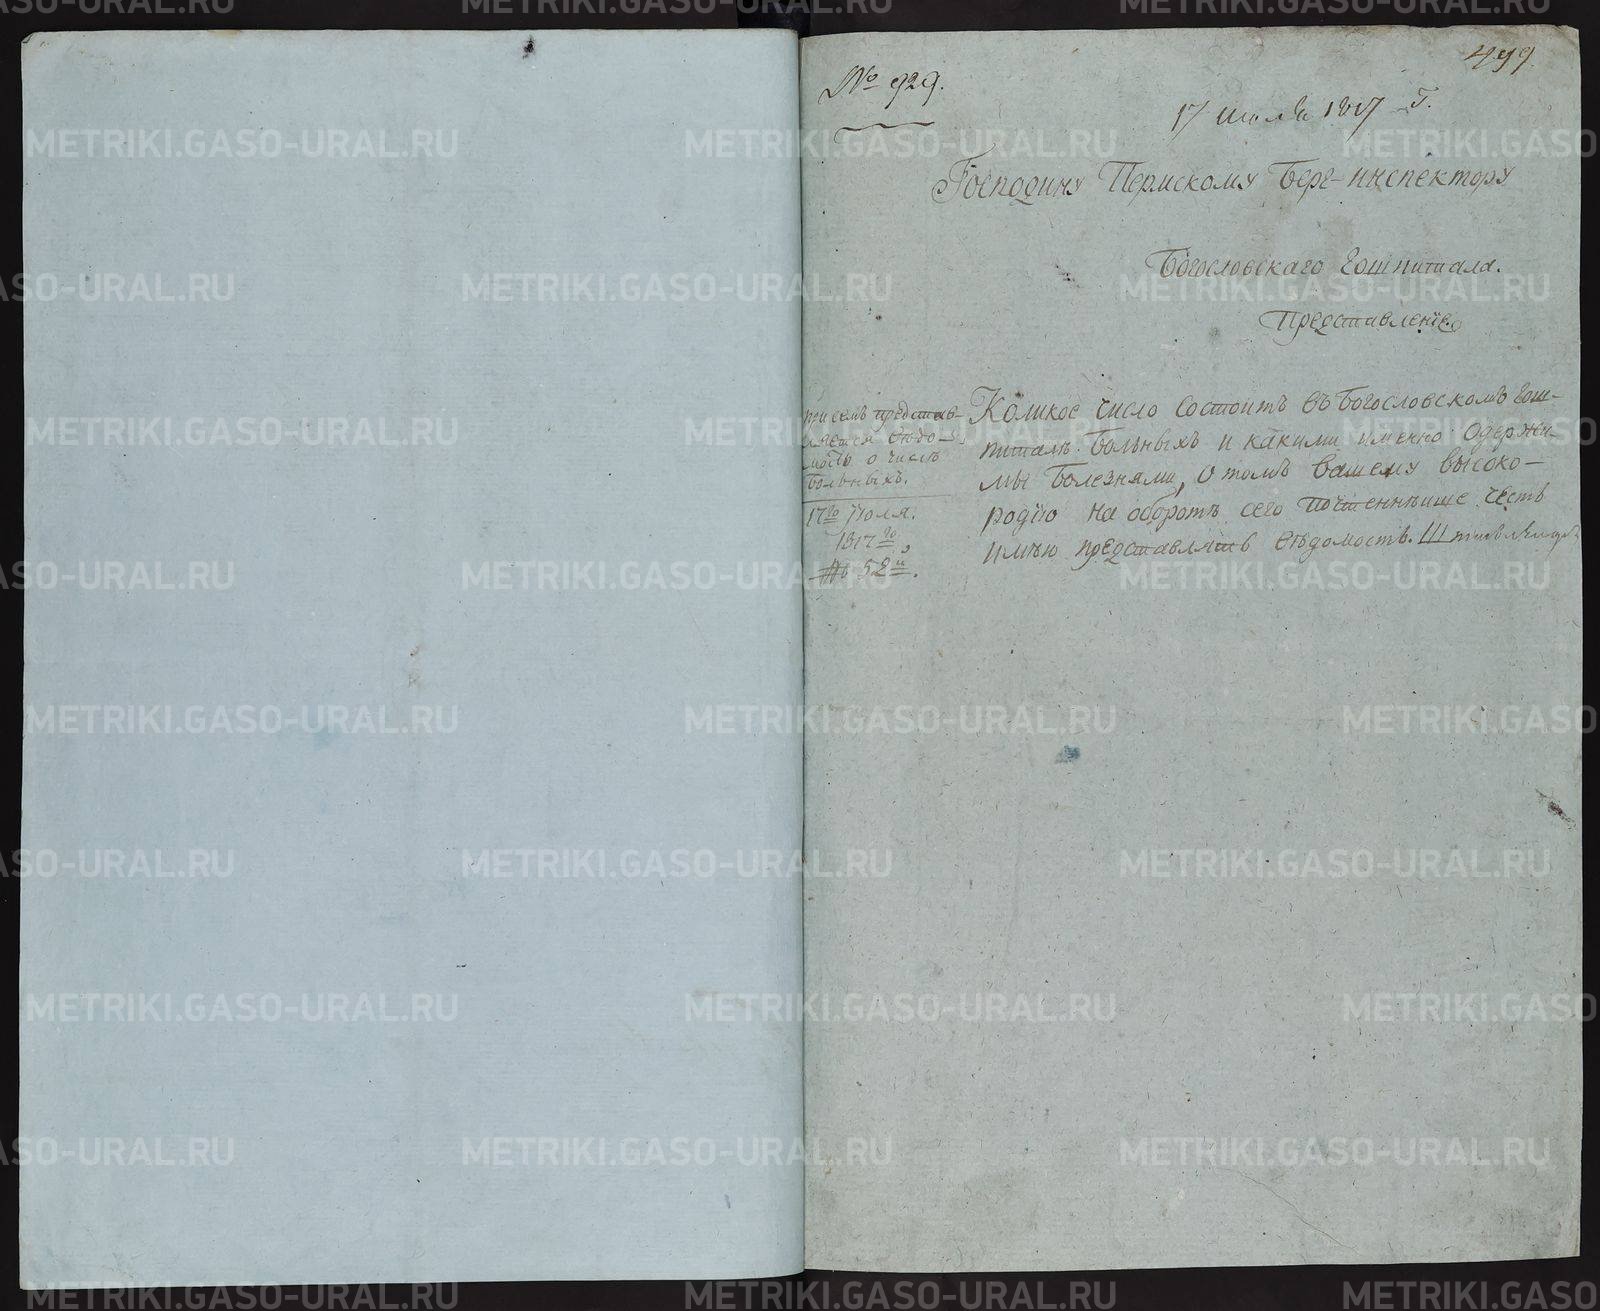 499
№ 929.
17 июля 1817 г.
Господину Пермскому Берг-инспектору
Богословскаго гошпиталя.
Представленіе
при семъ представ-
ляется вѣдо-
мость о числѣ
больныхъ.
17го Іюля.
1817го
№ 52й.
Коликое число состоитъ въ Богословскомъ гош-
питалѣ больныхъ и какими именно одержи-
мы болезнями, о томъ вашему высоко-
родію на оборотѣ сего почтеннѣйше честь
имѣю представлять вѣдомость.
METRIKI.GASO-URAL.RU